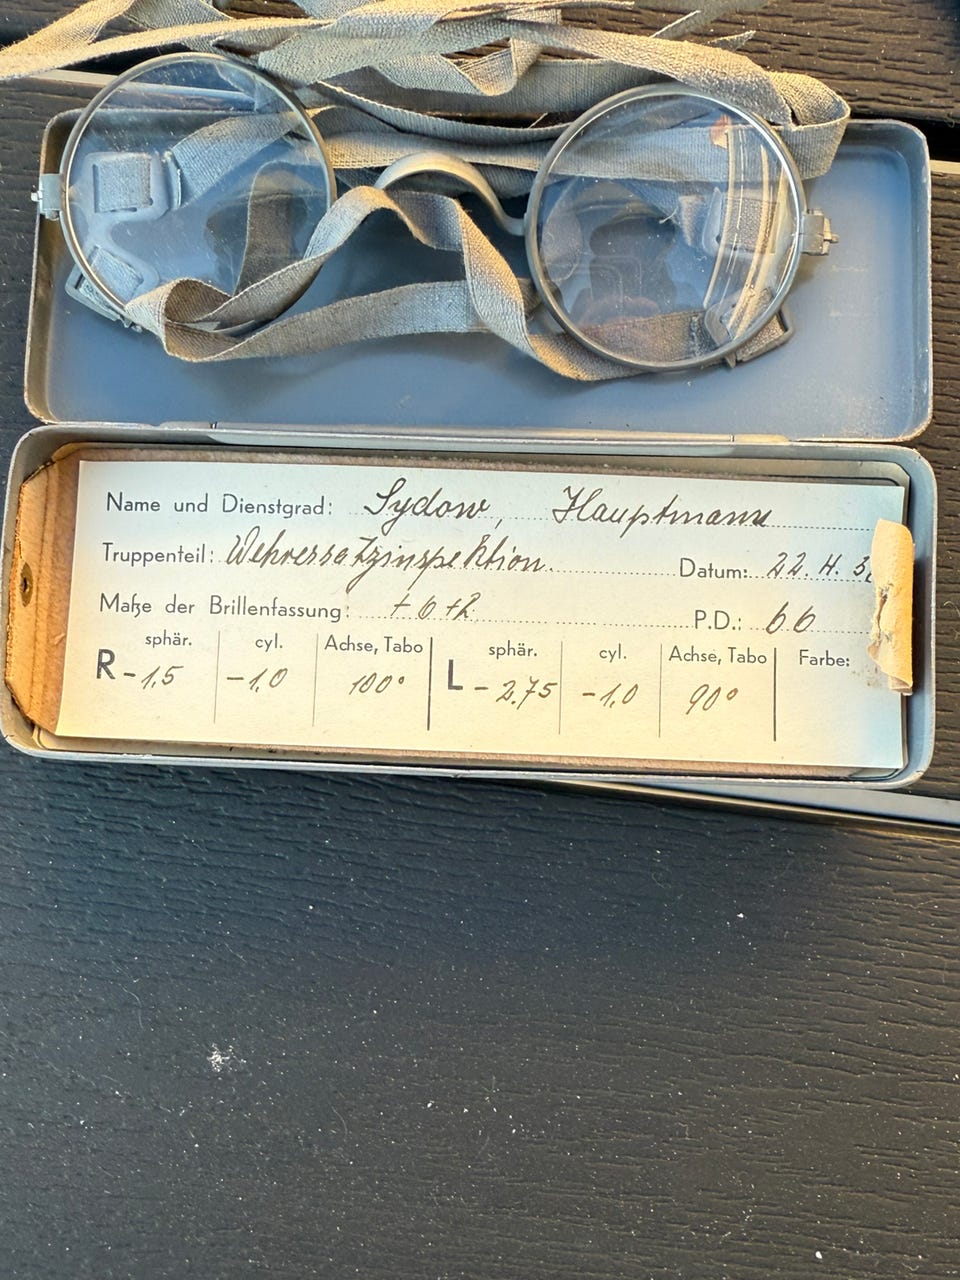 Name und Dienstgrad: Sydow, Hauptmann
Truppenteil: Wehrersatzinspektion. Datum: 22.4.3
Maße der Brillenfassung: + 6 +2 P.D.: 66
sphär. cyl. Achse, Tabo sphär. cyl. Achse, Tabo Farbe:
R -1,5 -1,0 100° L -2,75 -1,0 90°